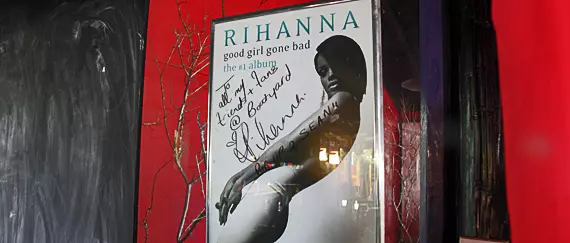 RIHANNA
good girl gone bad
the #1 album
To
all my
friends + fans
@ Boatyard
Rihanna
SEAN